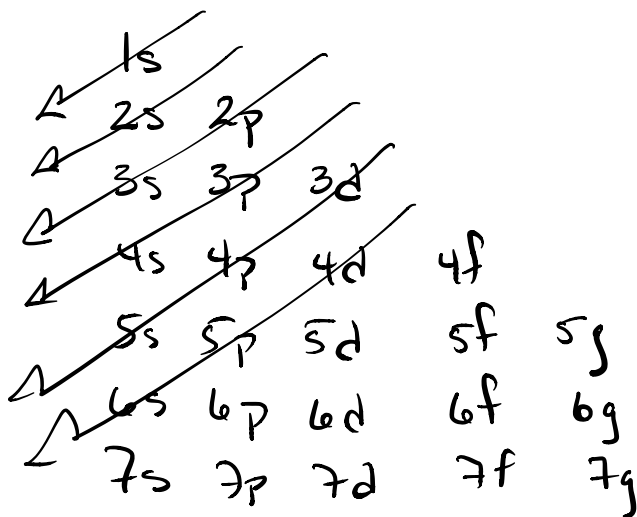 1s
2s 2p
3s 3p 3d
4s 4p 4d 4f
5s 5p 5d 5f 5g
6s 6p 6d 6f 6g
7s 7p 7d 7f 7g